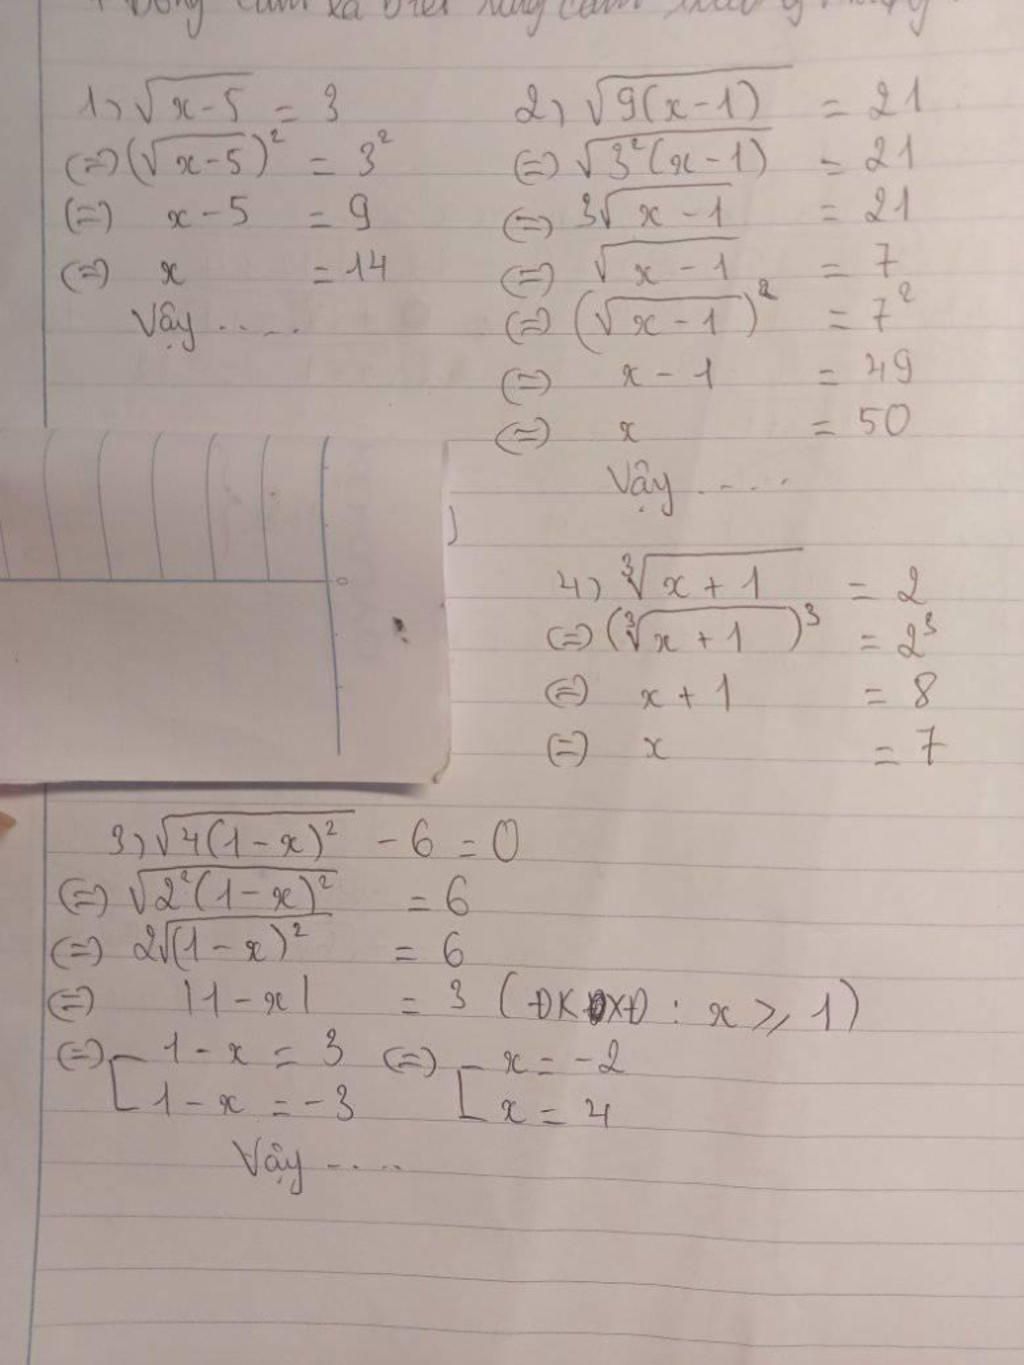 1, √(x-5) = 3
(=) (√(x-5))² = 3²
(=) x-5 = 9
(=) x = 14
Vậy .....
2, √(9(x-1)) = 21
(=) √(3²(x-1)) = 21
(=) 3√(x-1) = 21
(=) √(x-1) = 7
(=) (√(x-1))² = 7²
(=) x-1 = 49
(=) x = 50
Vậy .....
4, ∛(x+1) = 2
(=) (∛(x+1))³ = 2³
(=) x+1 = 8
(=) x = 7
3, √(4(1-x)²) - 6 = 0
(=) √(2²(1-x)²) = 6
(=) 2√((1-x)²) = 6
(=) |1-x| = 3 (ĐKXĐ : x ⩾ 1)
(=) [ 1-x = 3 (=) [ x = -2
1-x = -3 x = 4
Vậy .....